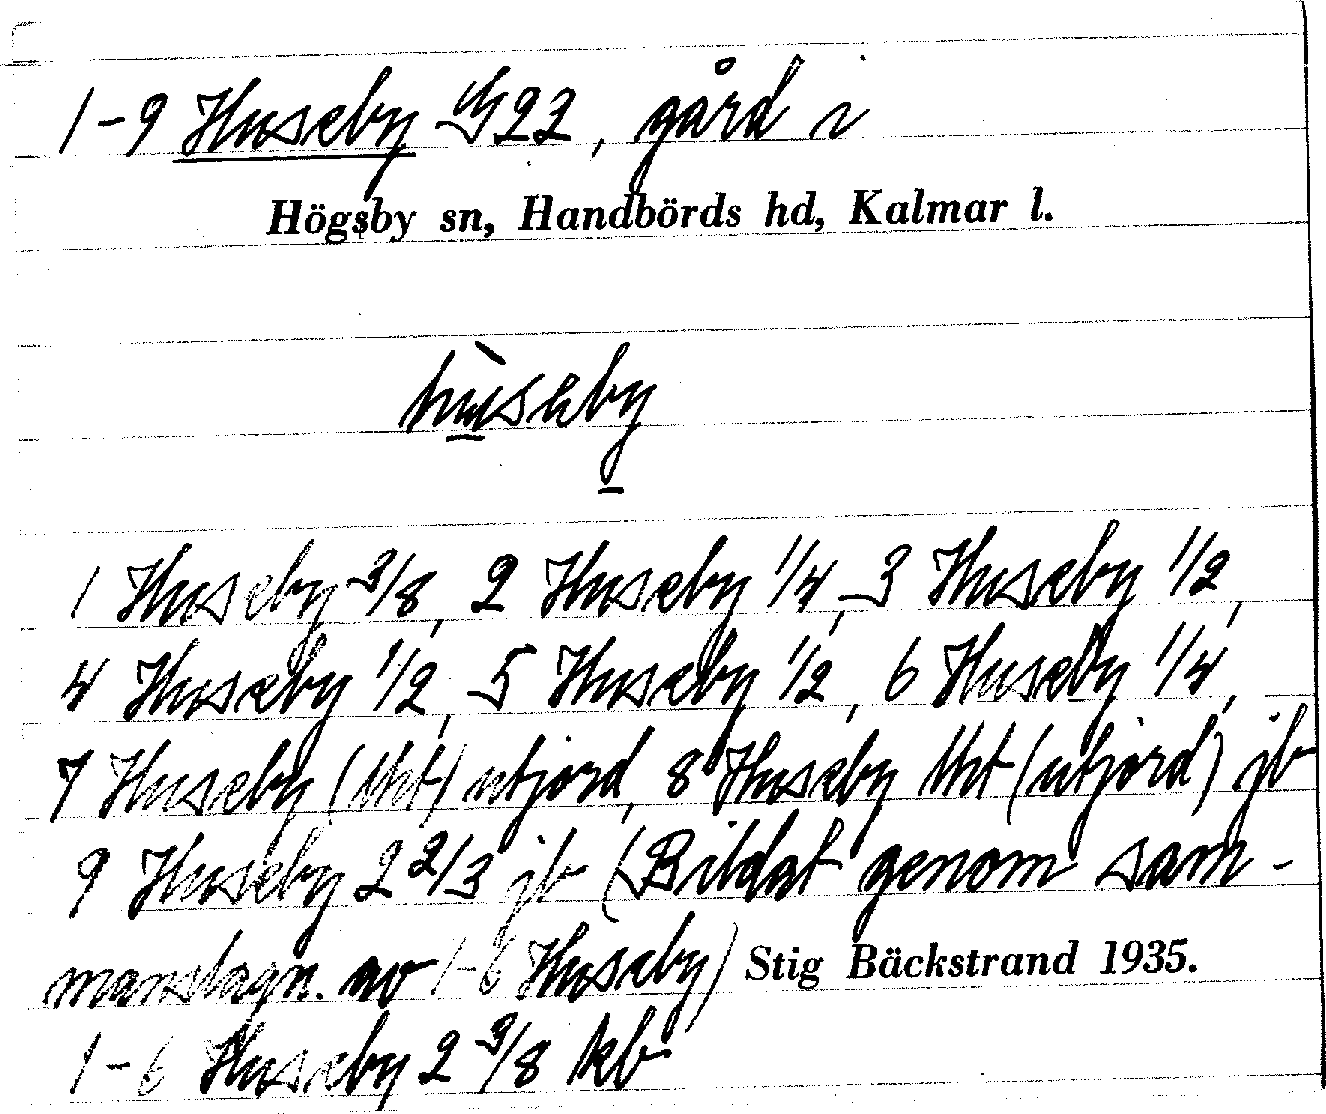 1-9 Huseby G22, gård i
Högsby sn, Handbörds hd, Kalmar l.
hùseby
1 Huseby 3/8, 2 Huseby 1/4, 3 Huseby 1/2,
4 Huseby 1/2, 5 Huseby 1/2, 6 Huseby 1/4,
7 Huseby (lht) utjord, 8 Huseby lht (utjord) jb
9 Huseby 2 2/3 jb (Bildat genom sam-
manslagn. av 1-6 Huseby) Stig Bäckstrand 1935.
1-6 Huseby 2 3/8 kb